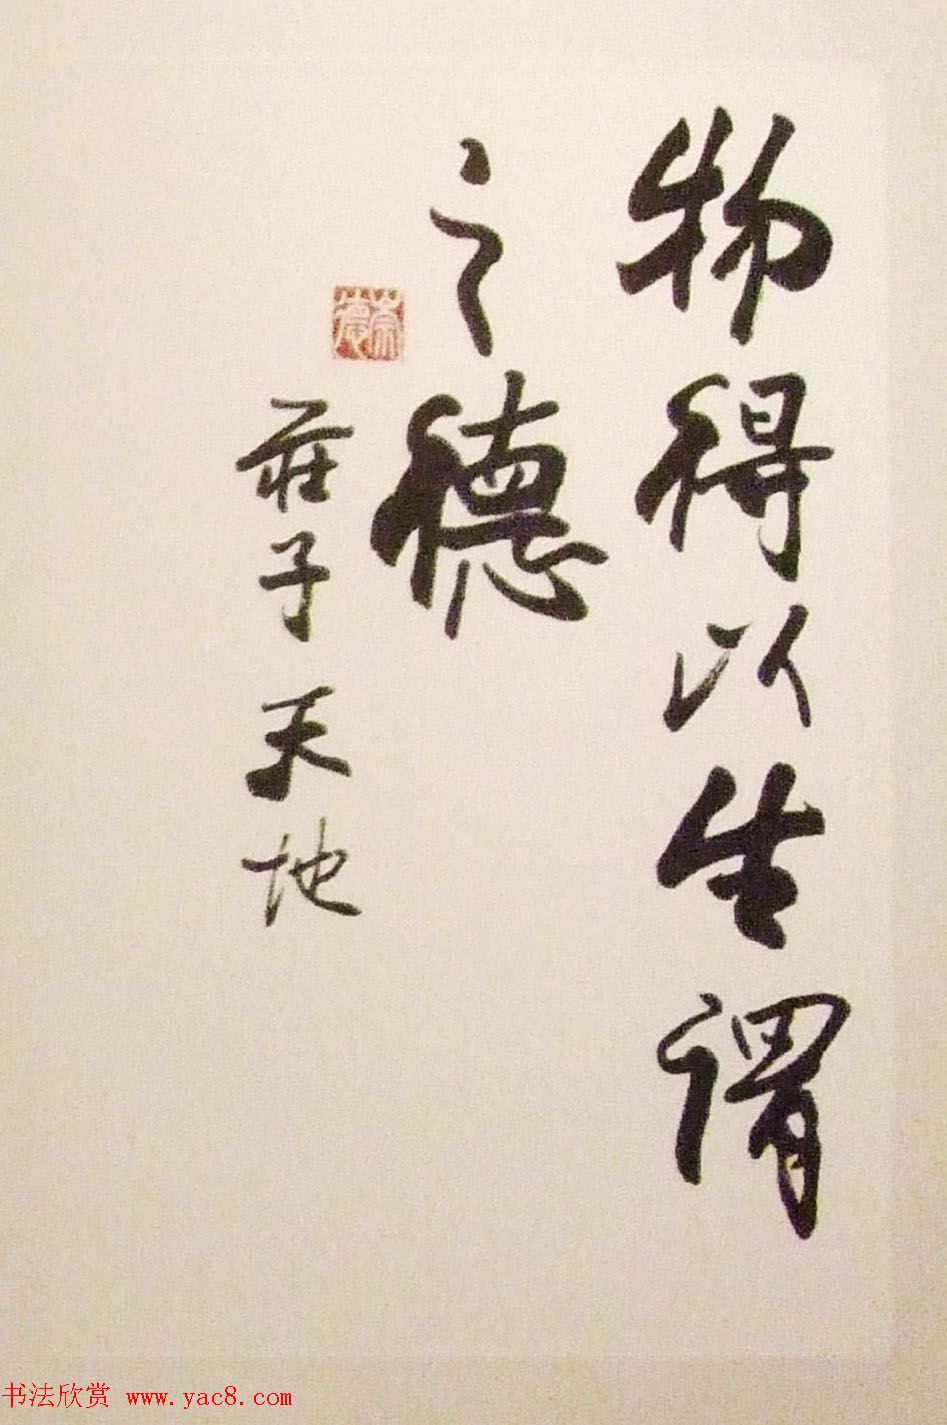 物得以生謂
之德
莊子 天地
崇德
书法欣赏 www.yac8.com